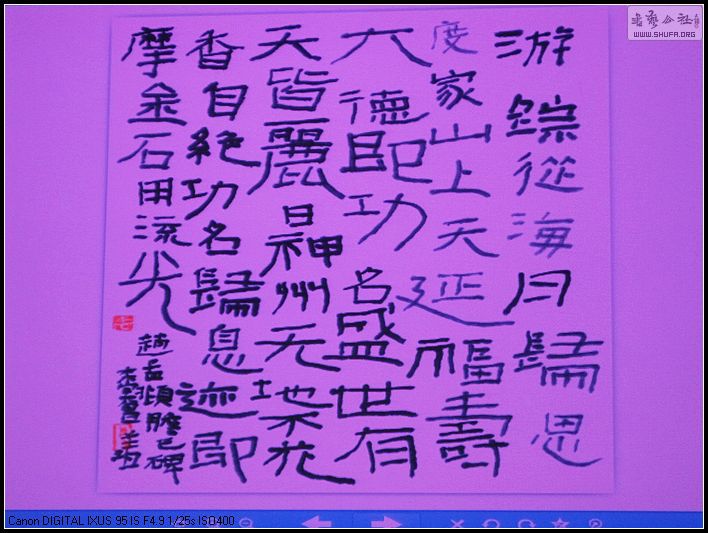 游踪從海日歸恩
度家山上天延福壽
大德即功名盛世有
天皆麗日神州无地不花
香自絕功名歸息迹即
摩金石用流光
趙孟頫膽巴碑
书艺公社
WWW.SHUFA.ORG
Canon DIGITAL IXUS 95 IS F4.9 1/25s ISO400